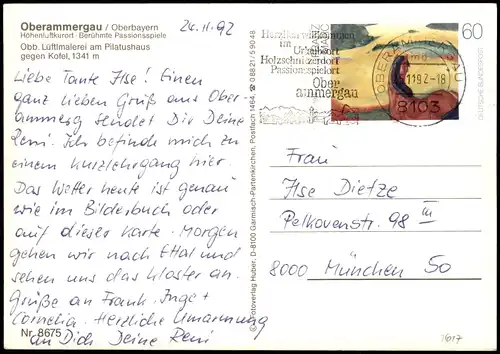 Oberammergau / Oberbayern
Höhenluftkurort · Berühmte Passionsspiele
Obb. Lüftlmalerei am Pilatushaus
gegen Kofel, 1341 m
24.11.92
Liebe Tante Ilse! Einen
ganz lieben Gruß aus Ober-
ammerg sendet Dir Deine
Reni. Ich befinde mich zu
einem Kurzlehrgang hier.
Das Wetter heute ist genau
wie im Bilderbuch oder
auf dieser Karte. Morgen
gehen wir nach Ettal und
sehen uns das Kloster an.
Grüße an Frank, Inge +
Cornelia. Herzliche Umarmung
an Dich Deine Reni
Nr. 8675
© Fotoverlag Huber, D-8100 Garmisch-Partenkirchen, Postfach 1464, ☎ 08821/59048
Herzlich willkommen
im
Urlaubsort
Holzschnitzerdorf
Passionsspielort
Ober
ammergau
OBERAMMERGAU
8103
60
DEUTSCHE BUNDESPOST
Frau
Ilse Dietze
Pelkovenstr. 98 III
8000 München 50